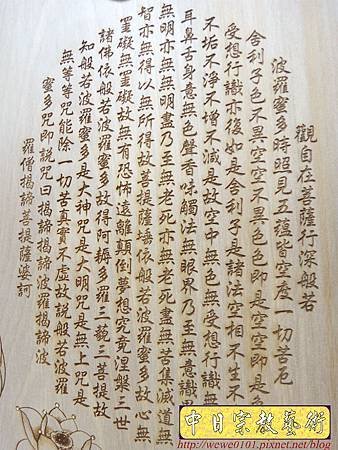 觀自在菩薩行深般若
波羅蜜多時照見五蘊皆空度一切苦厄
舍利子色不異空空不異色色即是空空即是色
受想行識亦復如是舍利子是諸法空相不生不
不垢不淨不增不減是故空中無色無受想行識無
耳鼻舌身意無色聲香味觸法無眼界乃至無意識界
無無明亦無無明盡乃至無老死亦無老死盡無苦集滅道無
智亦無得以無所得故菩提薩埵依般若波羅蜜多故心無
罣礙無罣礙故無有恐怖遠離顛倒夢想究竟涅槃三世
諸佛依般若波羅蜜多故得阿耨多羅三藐三菩提故
知般若波羅蜜多是大神咒是大明咒是無上咒是
無等等咒能除一切苦真實不虛故說般若波羅
蜜多咒即說咒曰揭諦揭諦波羅揭諦波
羅僧揭諦菩提薩婆訶
中日宗教藝術
http://wewe0101.pixnet.net/blog